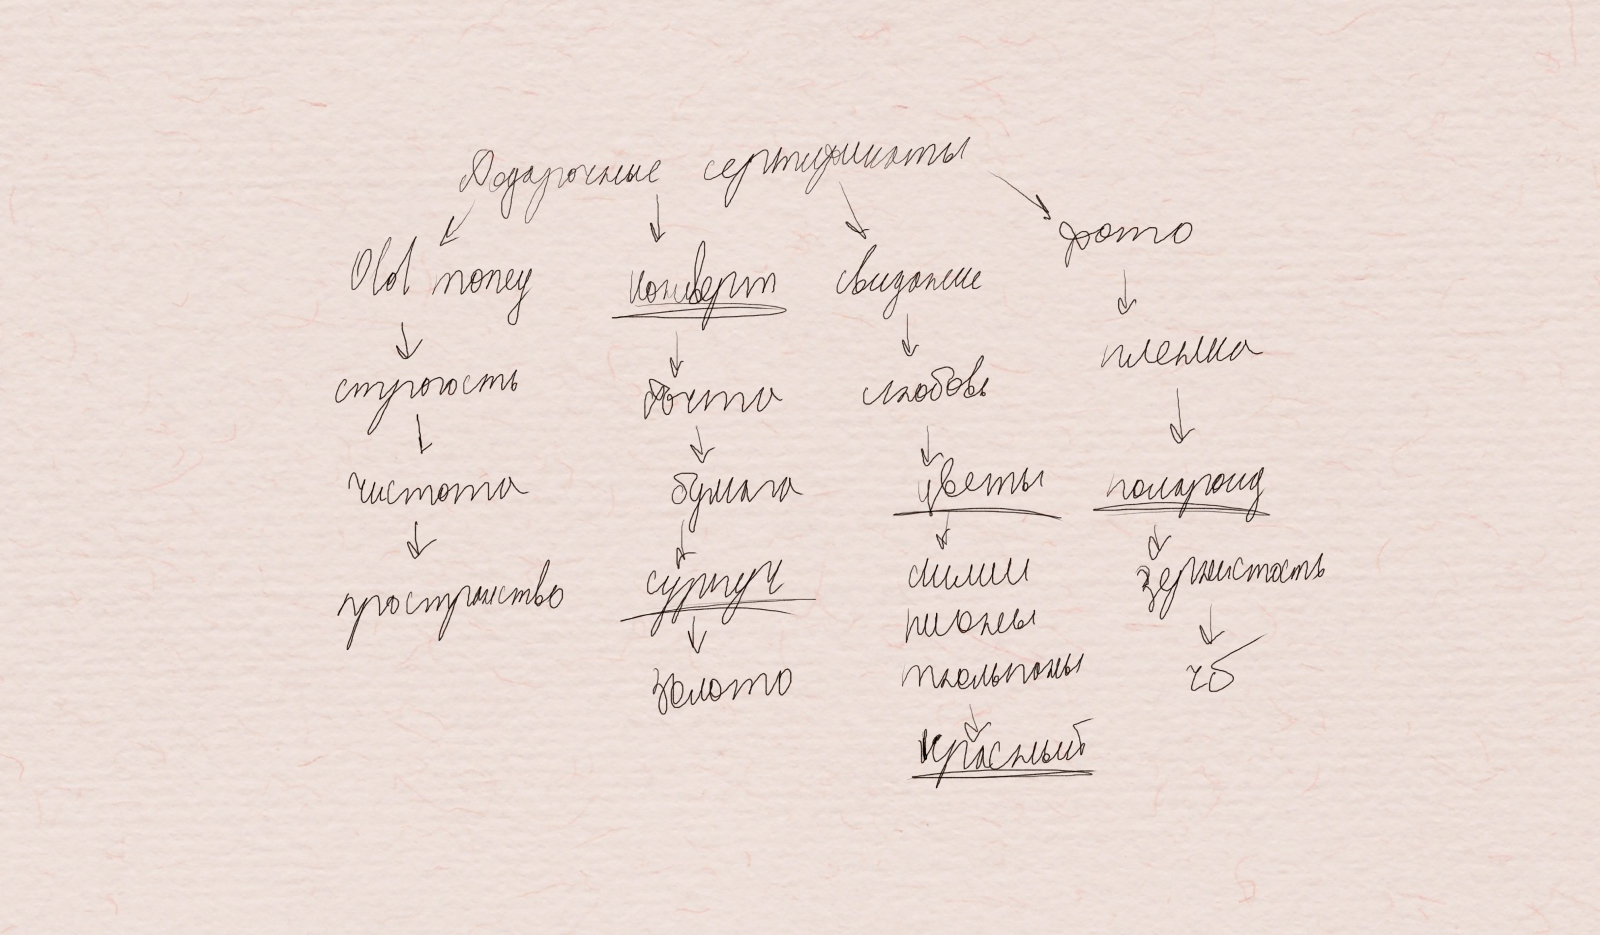 Подарочные сертификаты
Old money
строгость
чистота
пространство
конверт
почта
бумага
сургуч
золото
свидание
любовь
цветы
лилии
пионы
тюльпаны
красный
фото
пленка
полароид
зернистость
чб